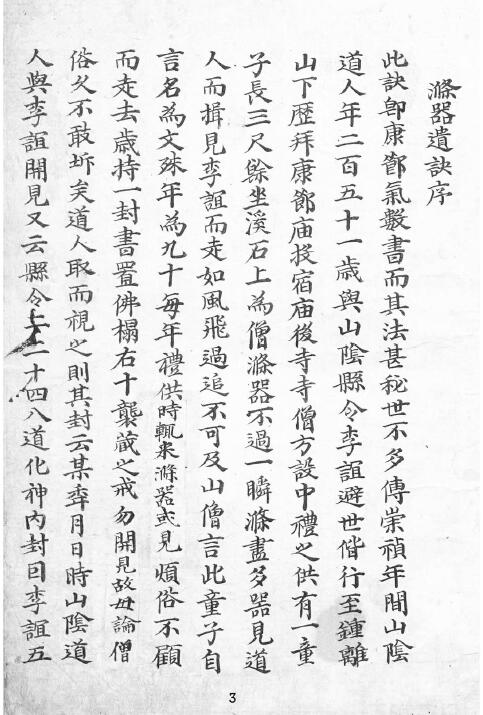 滌器遺訣序
此訣卽康節氣數書而其法甚秘世不多傳崇禎年間山陰
道人年二百五十一歲與山陰縣令李誼避世偕行至鍾離
山下歷拜康節庙投宿庙後寺寺僧方設中禮之供有一童
子長三尺餘坐溪石上為僧滌器不過一瞬滌盡多器見道
人而揖見李誼而走如風飛過追不可及山僧言此童子自
言名為文殊年為九十每年禮供時輒來滌器或見煩俗不顧
而走去歲持一封書置佛榻右十襲藏之戒勿開見故毋論僧
俗久不敢坼矣道人取而視之則其封云某年月日時山陰道
人與李誼開見又云縣令上二十四八道化神內封曰李誼五
3